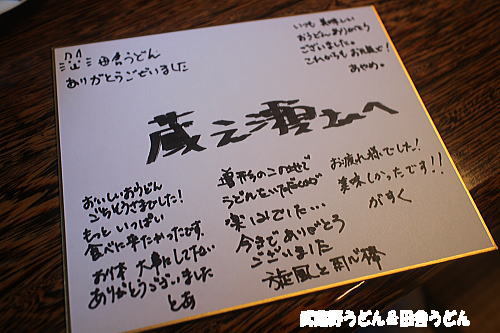 田舎うどん
ありがとうございました
いつも美味しい
おうどんありがとう
ございました。
これからもお元気で!
あやめ。
蔵之
おいしいおうどん
ごちそうさまでした!
もっといっぱい
食べに来たかったです
お体大事にしてたい
ありがとうございました
とあ
この地で
うどんをいただくのが
楽しみでした…
今まで、ありがとう
ございました
旋風と
お疲れ様でした!
美味しかったです!!
がすく
武蔵野うどん&田舎うどん